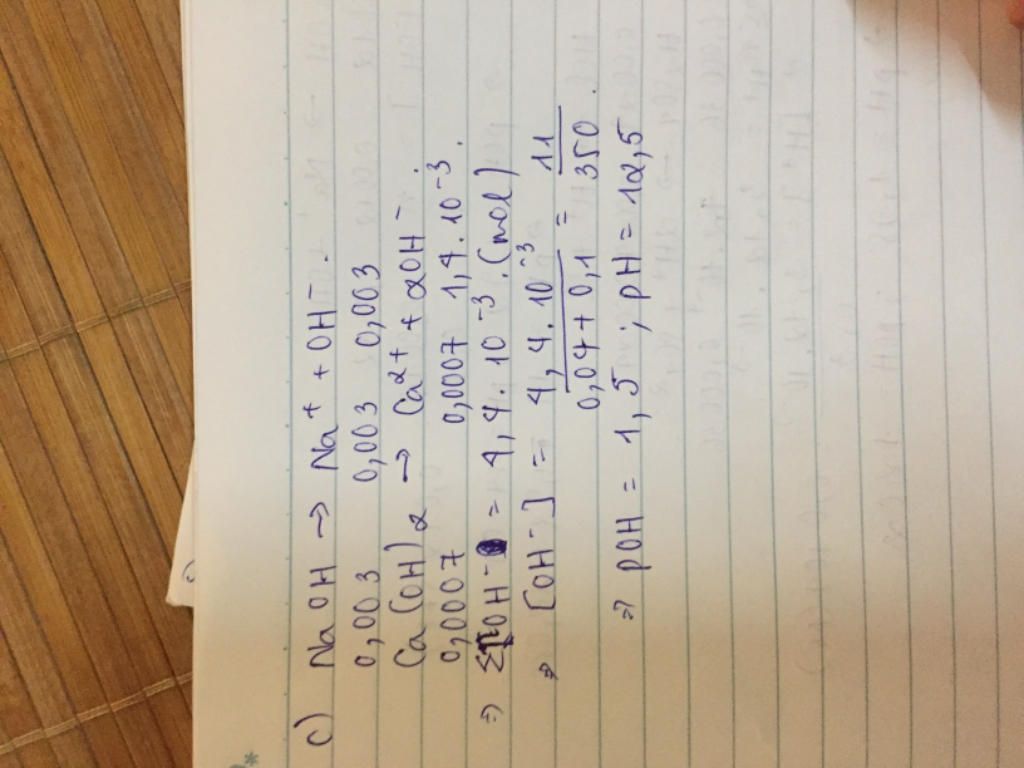 c) NaOH → Na⁺ + OH⁻.
0,003 0,003 0,003
Ca(OH)₂ → Ca²⁺ + 2OH⁻.
0,0007 0,0007 1,4.10⁻³.
⇒ Σ OH⁻ = 4,4.10⁻³.(mol)
⇒ [OH⁻] = 4,4.10⁻³ / 0,04 + 0,1 = 11 / 350.
⇒ pOH = 1,5 ; pH = 12,5